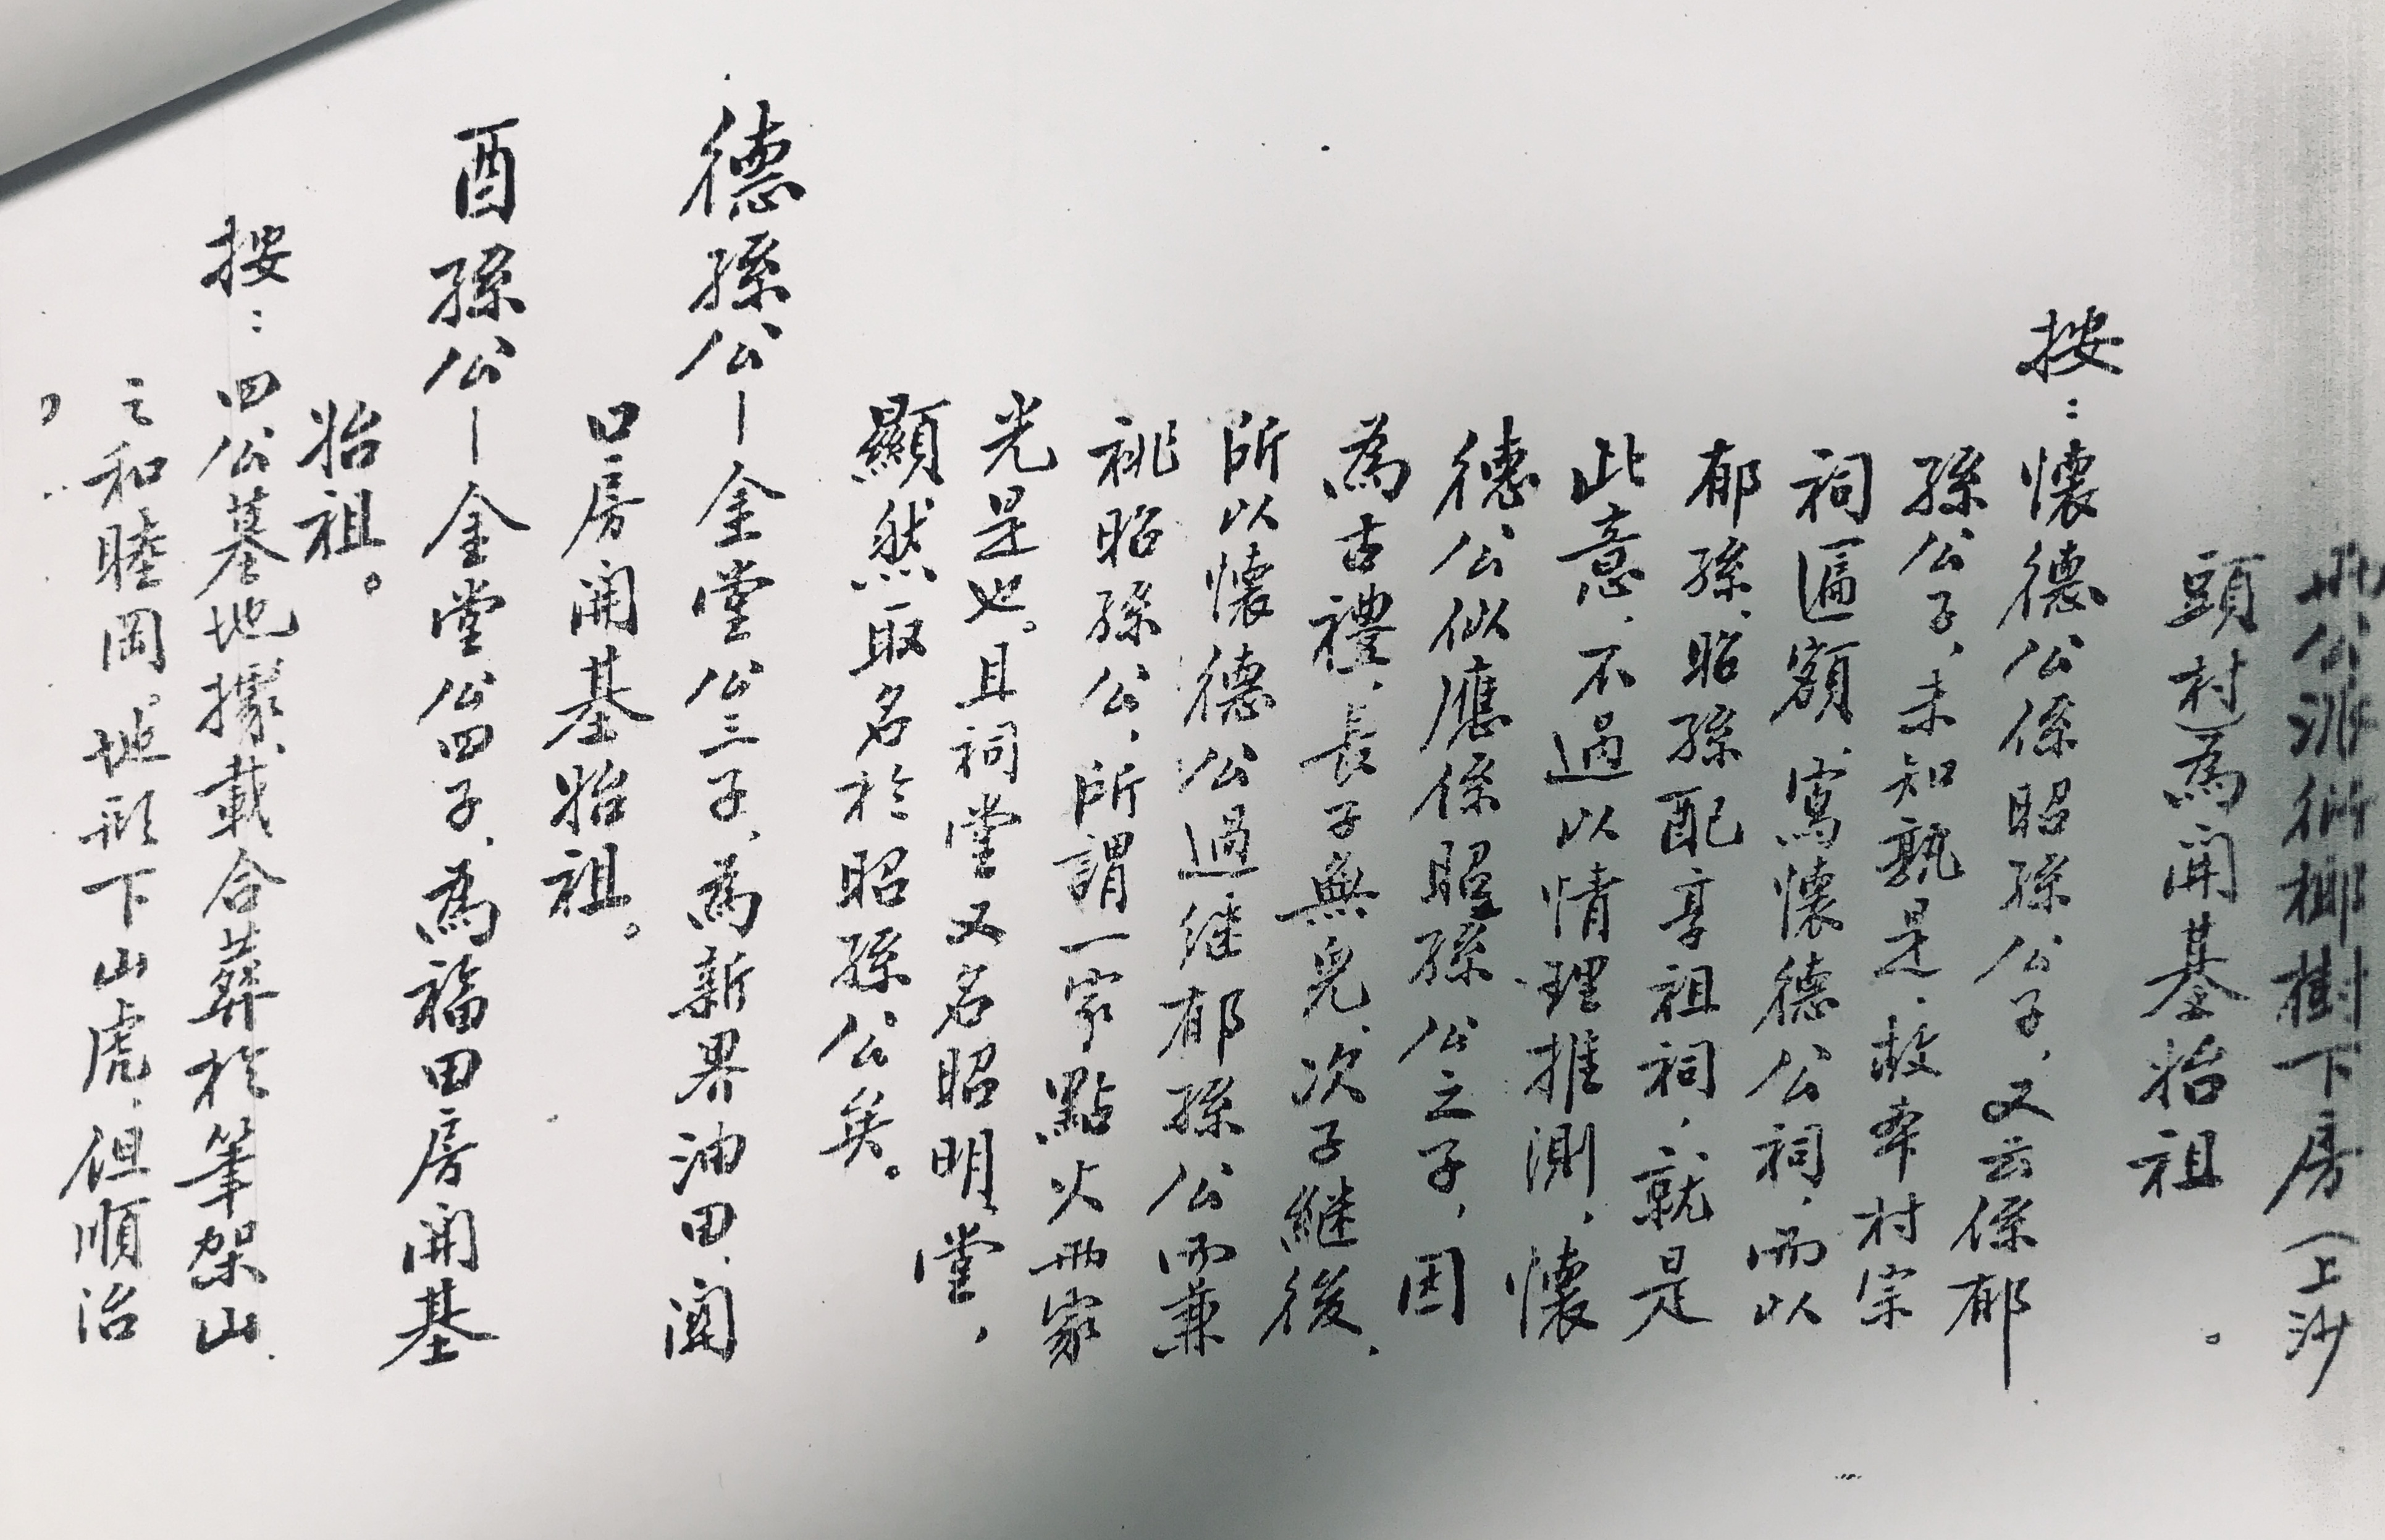 此公派衍梛樹下房（上沙
頭村）為開基始祖。
按：懷德公係昭孫公子，又云係郁
孫公子，未知孰是，故本村宗
祠匾額，寫懷德公祠，而以
郁孫、昭孫配享祖祠，就是
此意，不過以情理推測，懷
德公似應係昭孫公之子，因
為古禮，長子無兒，次子継後，
所以懷德公過继郁孫公而兼
祧昭孫公，所謂一家點火兩家
光是也。且祠堂又名昭明堂，
顯然取名於昭孫公矣。
德孫公—金堂公三子，為新界油田、開
口房開基始祖。
酉孫公—金堂公四子，為福田房開基
始祖。
按：四公墓地據載合葬於筆架山
之和睦岡。地形下山虎，但順治